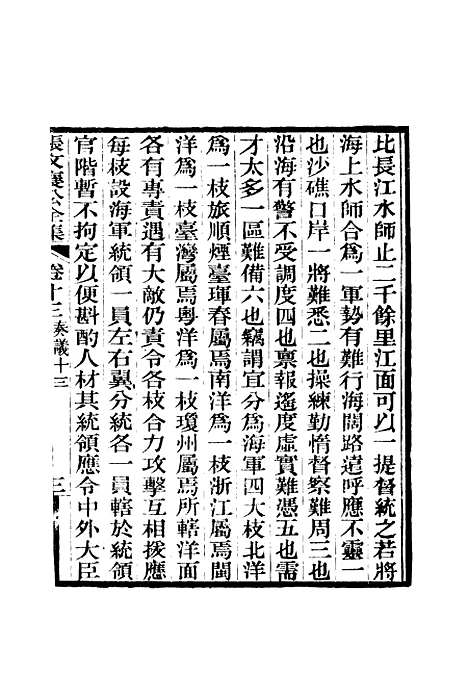 比長江水師止二千餘里江面可以一提督統之若將
海上水師合爲一軍勢有難行海闊路遠呼應不靈一
也沙礁口岸一將難悉二也操練勤惰督察難周三也
沿海有警不受調度四也稟報遙度虛實難憑五也需
才太多一區難備六也竊謂宜分爲海軍四大枝北洋
爲一枝旅順煙臺琿春屬焉南洋爲一枝浙江屬焉閩
洋爲一枝臺灣屬焉粤洋爲一枝瓊州屬焉所轄洋面
各有專責遇有大敵仍責令各枝合力攻擊互相援應
每枝設海軍統領一員左右翼分統各一員轄於統領
官階暫不拘定以便斟酌人材其統領應令中外大臣
張文襄公全集 卷十三 奏議十三 三